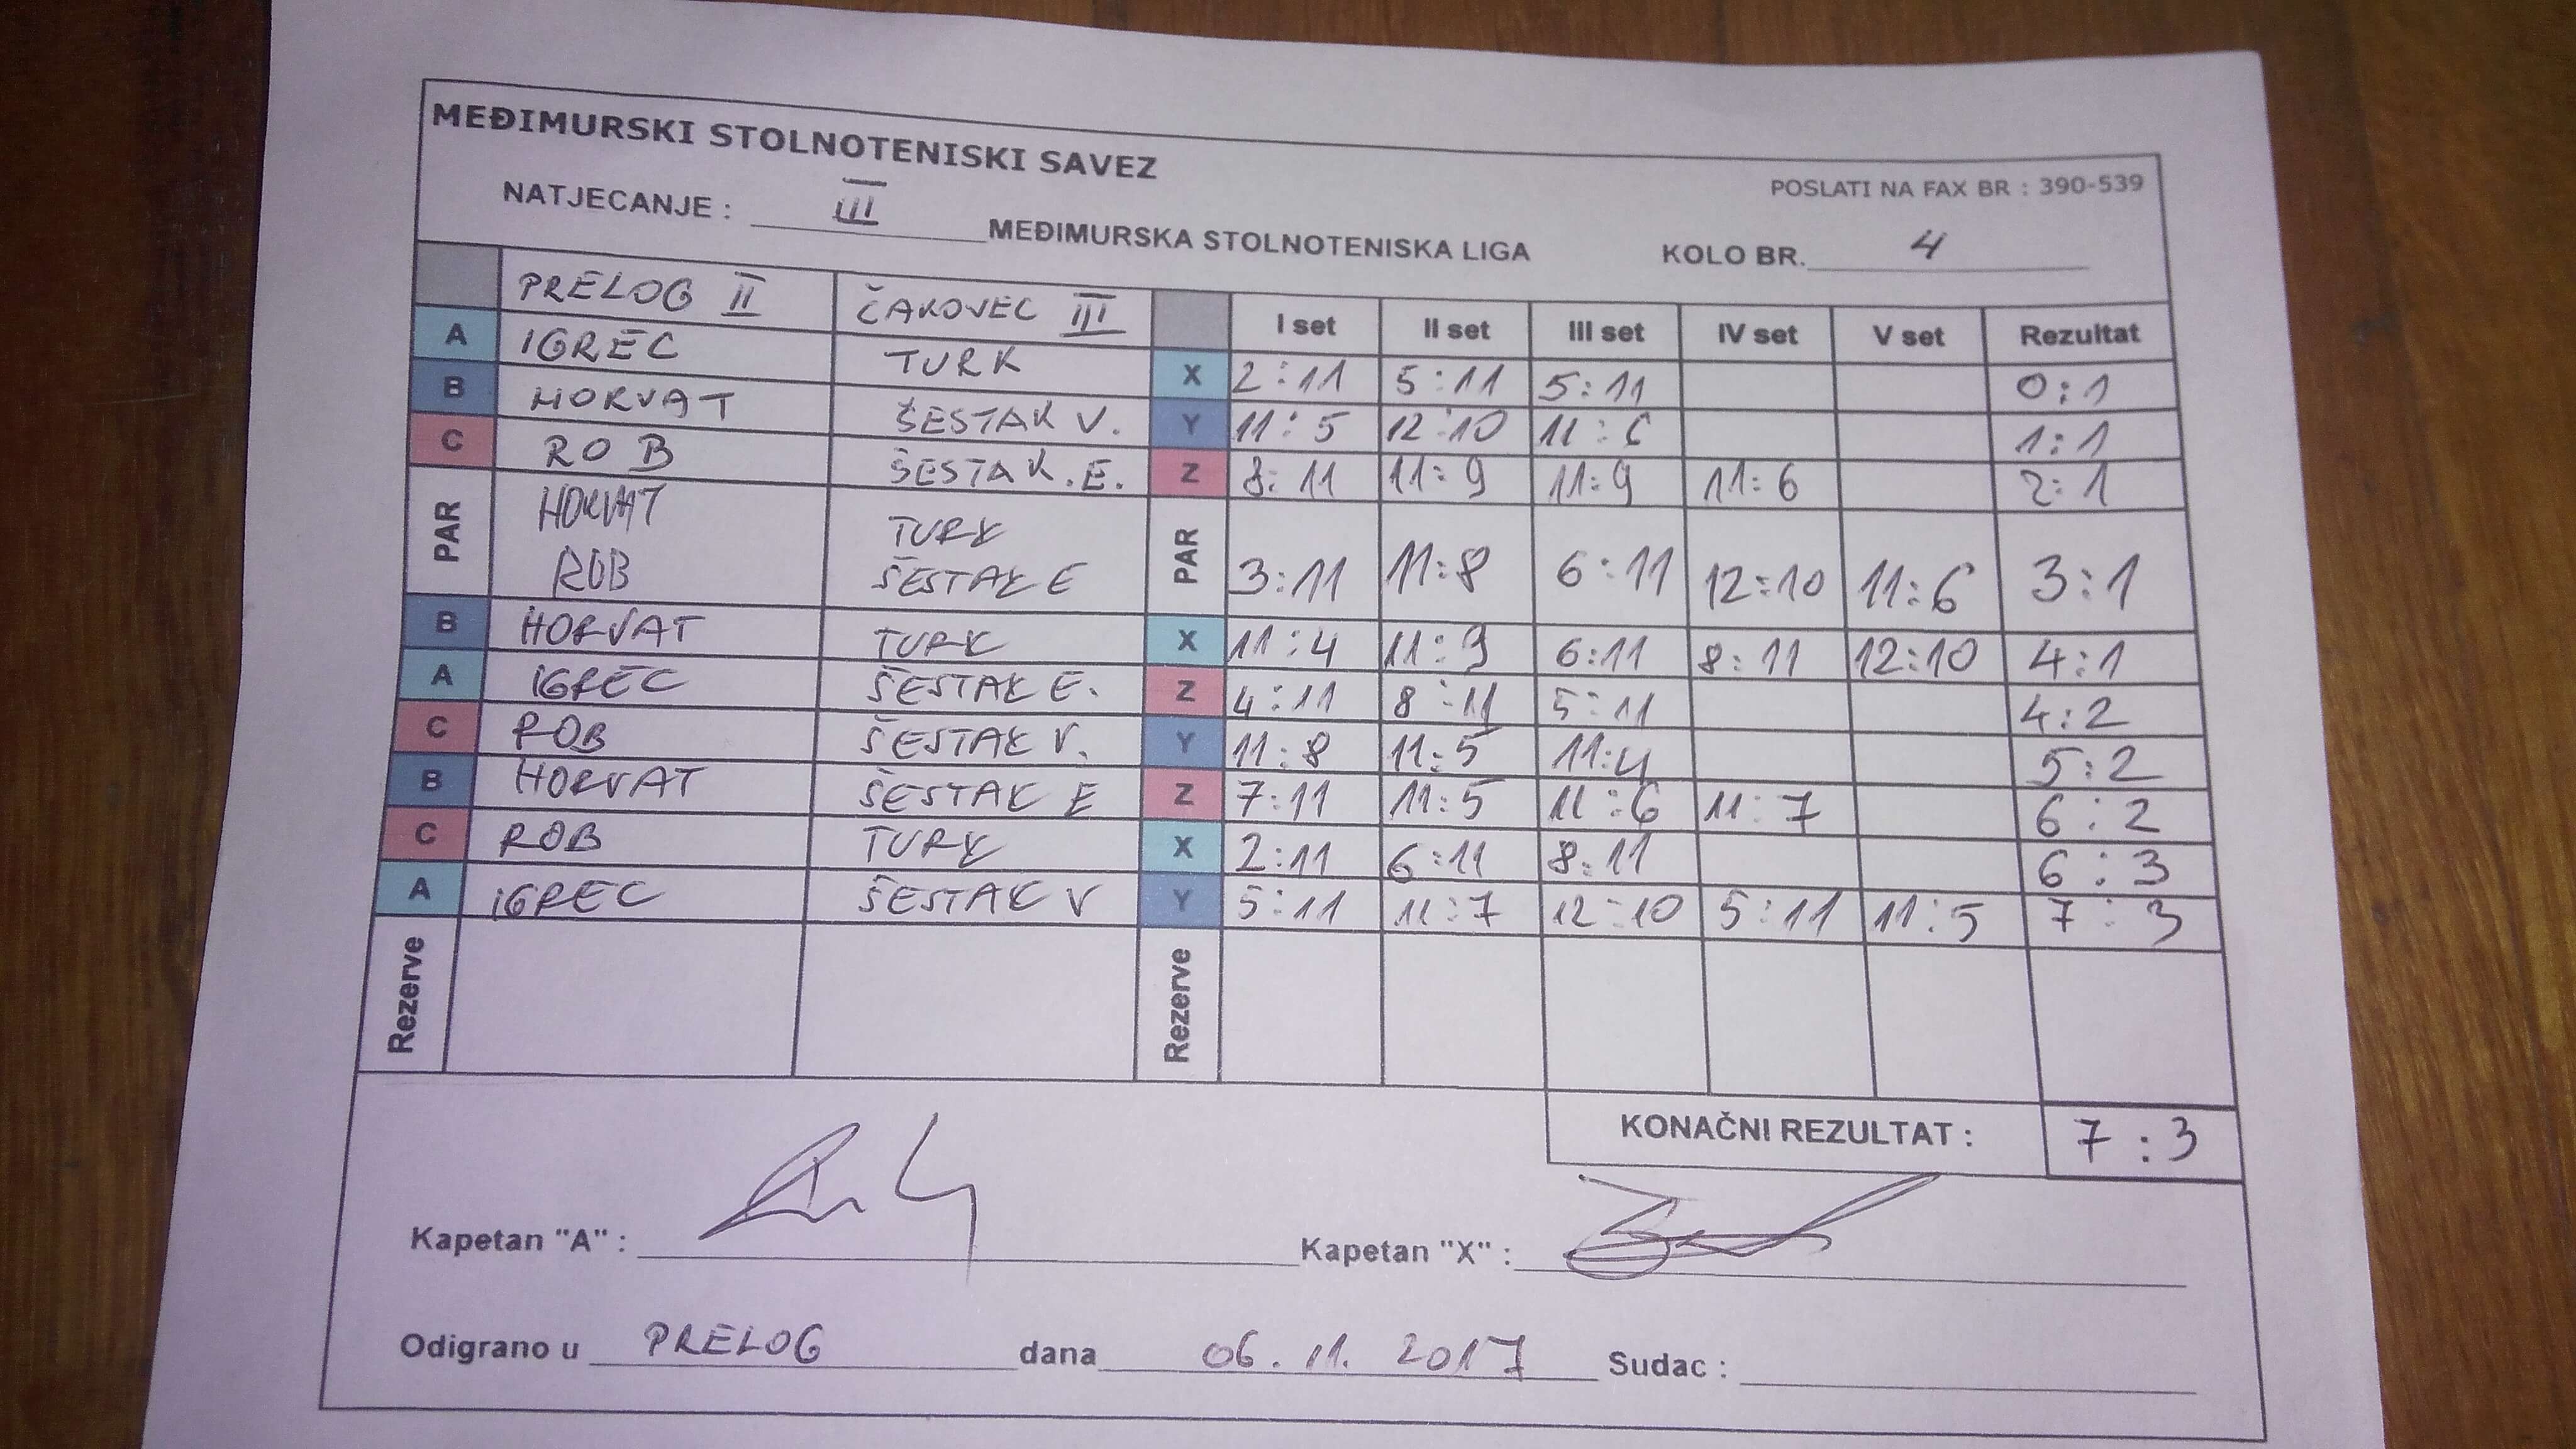 MEĐIMURSKI STOLNOTENISKI SAVEZ
POSLATI NA FAX BR : 390-539
NATJECANJE : III MEĐIMURSKA STOLNOTENISKA LIGA KOLO BR. 4
PRELOG II ČAKOVEC III I set II set III set IV set V set Rezultat
A IGREC TURK X 2:11 5:11 5:11 0:1
B HORVAT ŠESTAK V. Y 11:5 12:10 11:6 1:1
C ROB ŠESTAK.E. Z 8:11 11:9 11:9 11:6 2:1
PAR HORVAT TURK PAR 3:11 11:8 6:11 12:10 11:6 3:1
ROB ŠESTAK E
B HORVAT TURK X 11:4 11:9 6:11 8:11 12:10 4:1
A IGREC ŠESTAK E. Z 4:11 8:11 5:11 4:2
C ROB ŠESTAK V. Y 11:8 11:5 11:4 5:2
B HORVAT ŠESTAK E Z 7:11 11:5 11:6 11:7 6:2
C ROB TURK X 2:11 6:11 8:11 6:3
A IGREC ŠESTAK V Y 5:11 11:7 12:10 5:11 11:5 7:3
Rezerve Rezerve
KONAČNI REZULTAT : 7:3
Kapetan "A" : Kapetan "X" :
Odigrano u PRELOG dana 06.11.2017 Sudac :